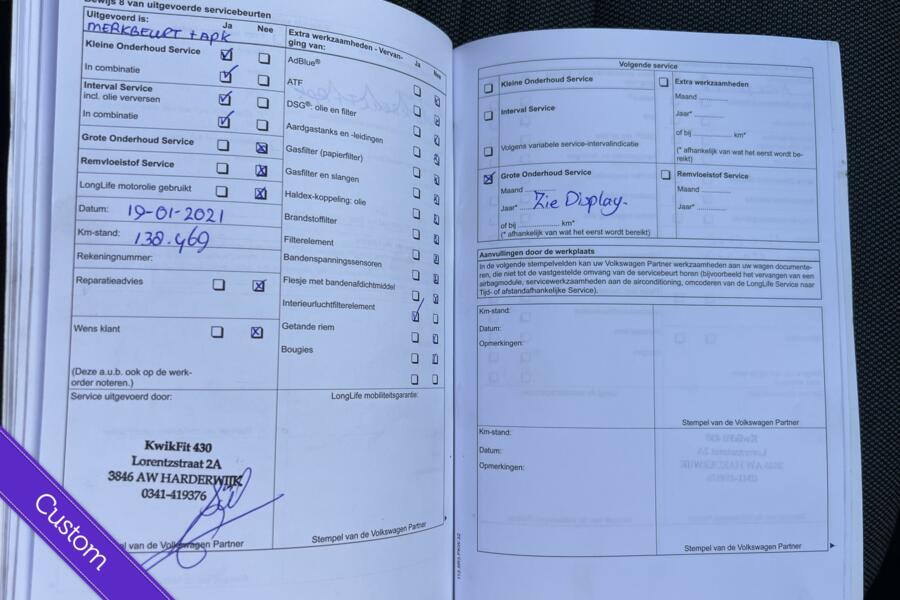 Bewijs 8 van uitgevoerde servicebeurten
Uitgevoerd is: Ja Nee
MERKBEURT + APK
Kleine Onderhoud Service
In combinatie
Interval Service
incl. olie verversen
In combinatie
Grote Onderhoud Service
Remvloeistof Service
LongLife motorolie gebruikt
Datum: 19-01-2021
Km-stand: 138.469
Rekeningnummer:
Reparatieadvies
Wens klant
(Deze a.u.b. ook op de werk-
order noteren.)
Service uitgevoerd door:
KwikFit 430
Lorentzstraat 2A
3846 AW HARDERWIJK
0341-419376
van de Volkswagen Partner
Extra werkzaamheden - Vervan-
ging van: Ja Nee
AdBlue®
ATF
DSG®: olie en filter
Aardgastanks en -leidingen
Gasfilter (papierfilter)
Gasfilter en slangen
Haldex-koppeling: olie
Brandstoffilter
Filterelement
Bandenspanningssensoren
Flesje met bandenafdichtmiddel
Interieurluchtfilterelement
Getande riem
Bougies
LongLife mobiliteitsgarantie:
Stempel van de Volkswagen Partner
Volgende service
Kleine Onderhoud Service
Interval Service
Volgens variabele service-intervalindicatie
Grote Onderhoud Service
Maand
Jaar* Zie Display-
of bij km*
(* afhankelijk van wat het eerst wordt bereikt)
Extra werkzaamheden
Maand
Jaar*
of bij km*
(* afhankelijk van wat het eerst wordt be-
reikt)
Remvloeistof Service
Maand
Jaar*
Aanvullingen door de werkplaats
In de volgende stempelvelden kan uw Volkswagen Partner werkzaamheden aan uw wagen documente-
ren, die niet tot de vastgestelde omvang van de servicebeurt horen (bijvoorbeeld het vervangen van een
airbagmodule, servicewerkzaamheden aan de airconditioning, omcoderen van de LongLife Service naar
Tijd- of afstandafhankelijke Service).
Km-stand:
Datum:
Opmerkingen:
Stempel van de Volkswagen Partner
Km-stand:
Datum:
Opmerkingen:
Stempel van de Volkswagen Partner
Custom